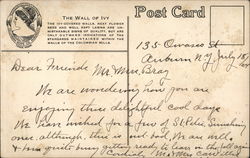 THE WALL OF IVY
THE IVY-COVERED WALLS, NEAT FLOWER
BEDS AND WELL KEPT LAWNS ARE UN-
MISTAKABLE SIGNS OF QUALITY, BUT ARE
ONLY OUTWARD INDICATIONS OF THE
STANDARDS MAINTAINED WITHIN THE
WALLS OF THE COLUMBIAN MILLS.
Post Card
135 Owasco St
Auburn N.Y. July 15/
Dear Friends Mr & Mrs Bray
We are wondering how you are
enjoying these delightful cool days
We have wished for a few of St. Pete. Sunshiny
ones although this is not bad. We are well &
are getting ready to leave in the fall
Cordial Mr & Mrs